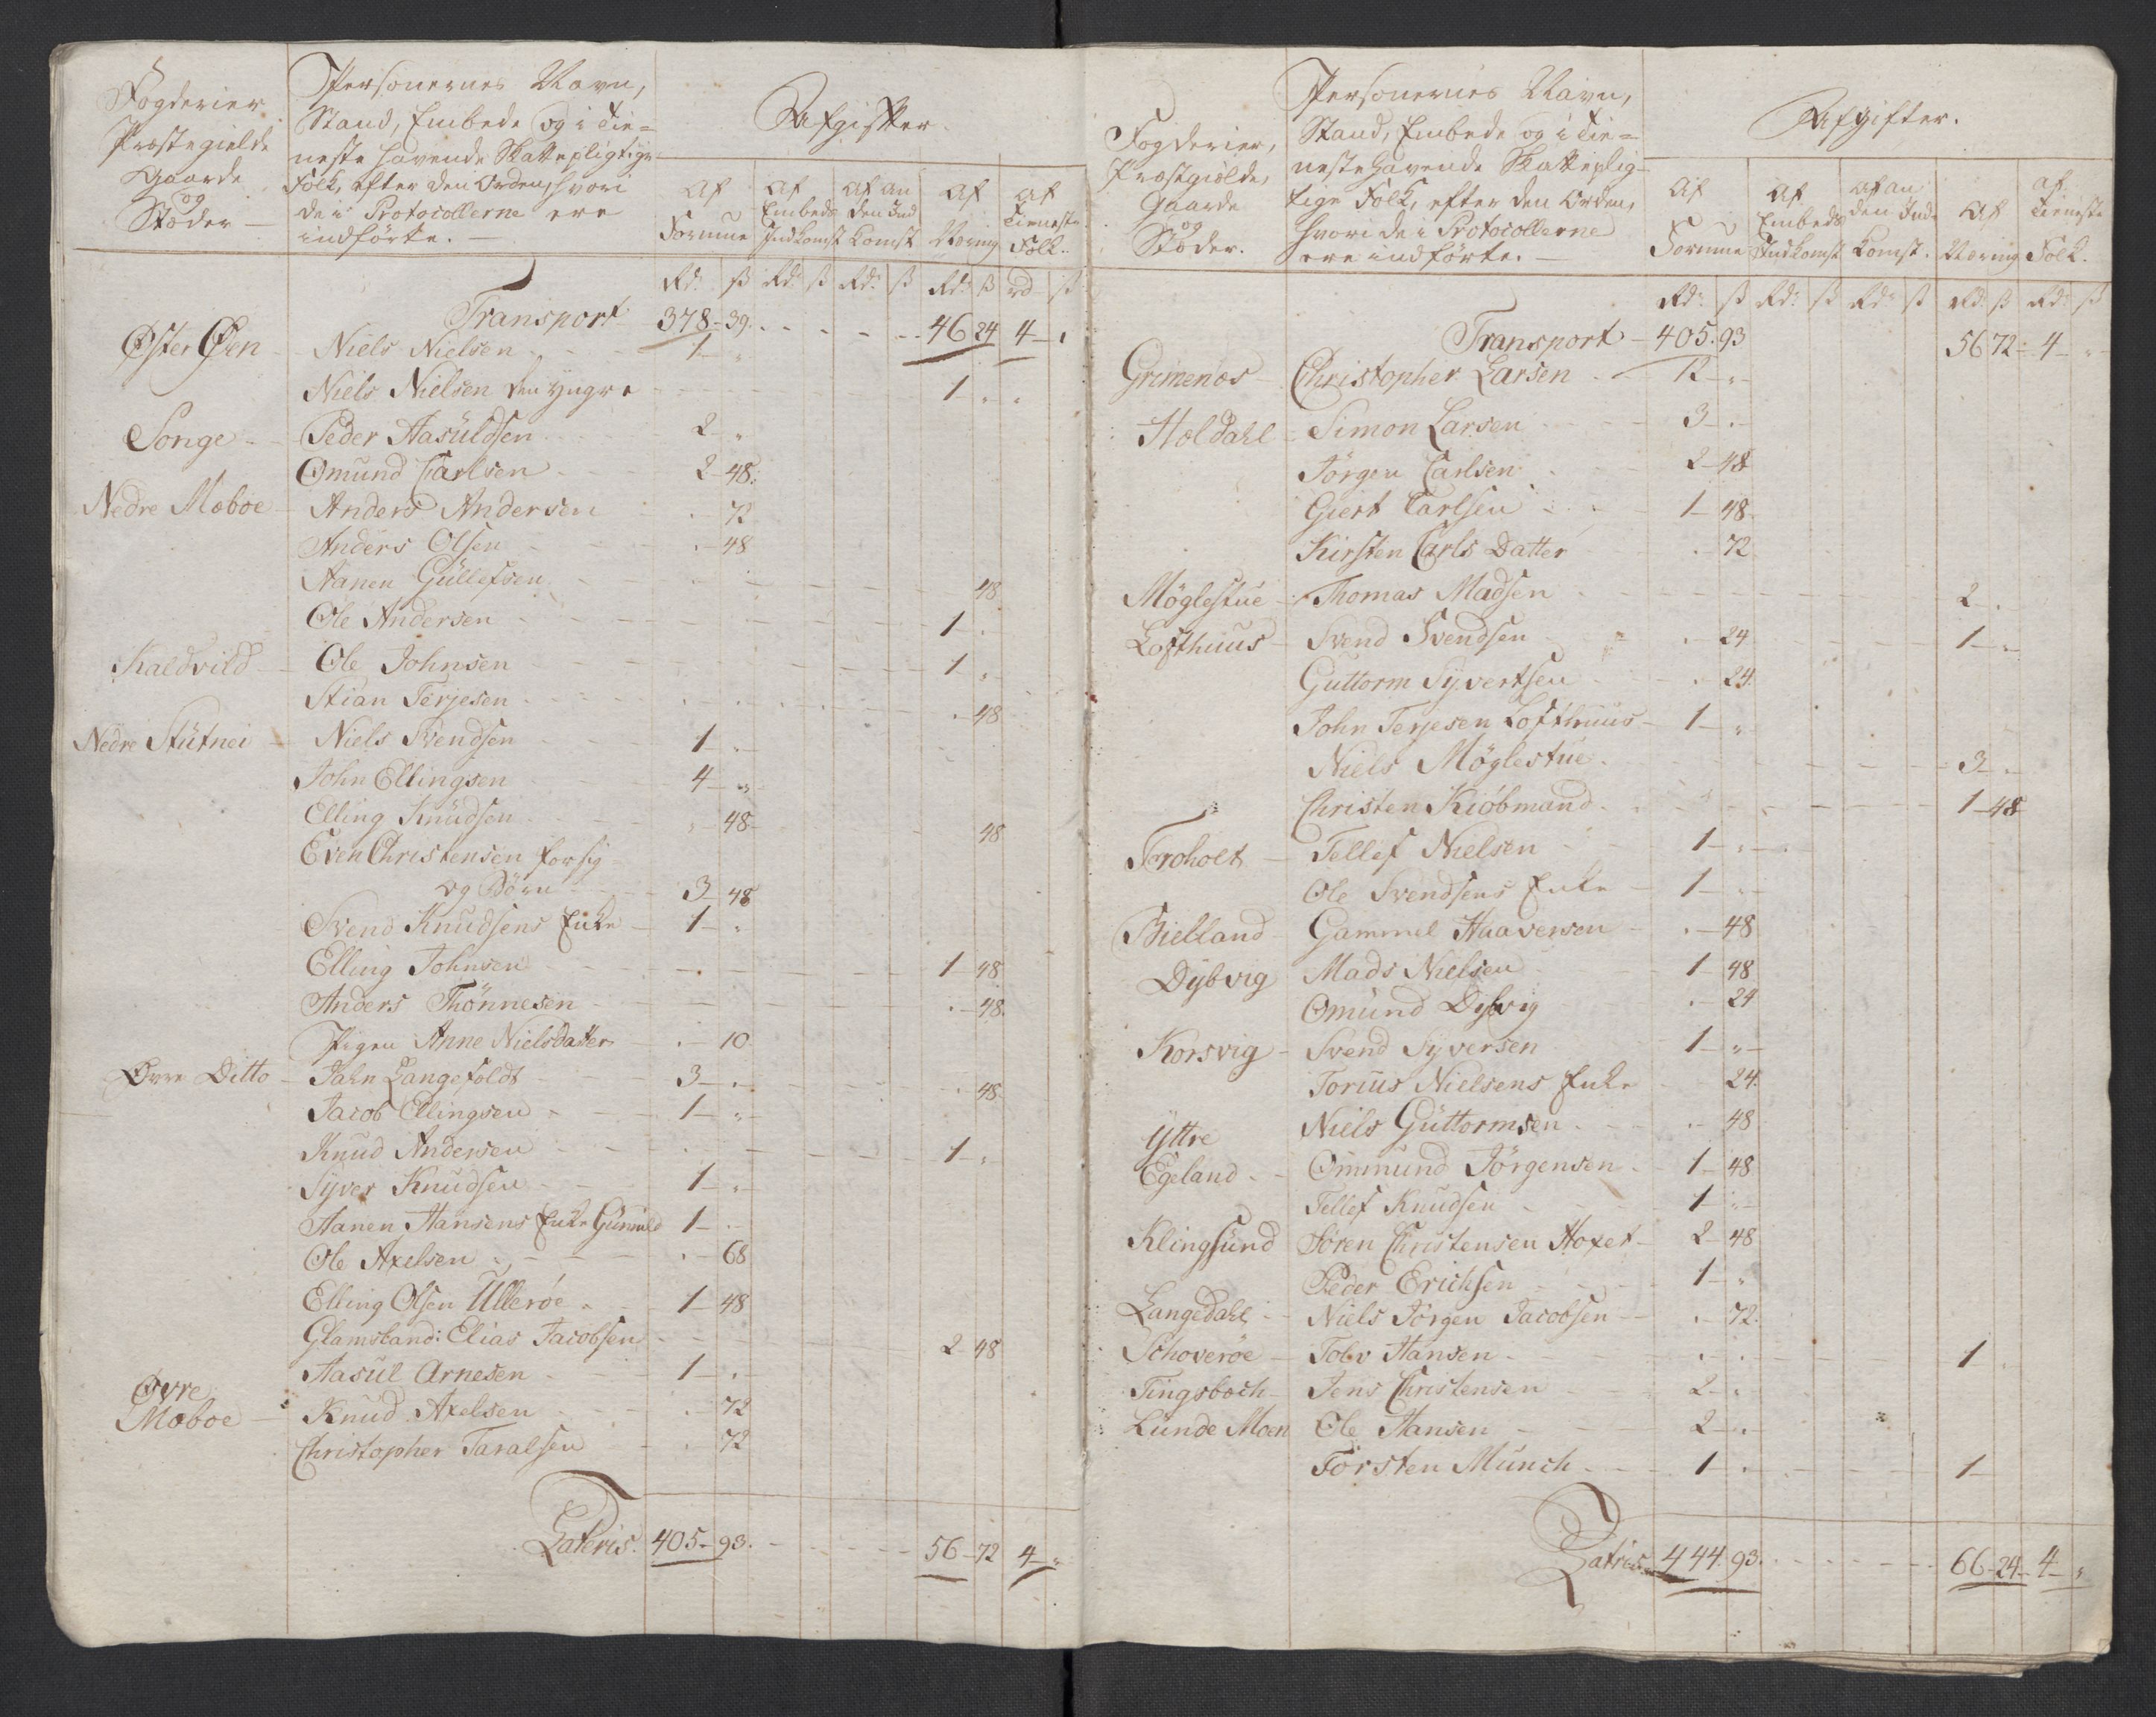 Fogderier
Præstegielde
Gaarde
og
Stæder
Personernes Navn,
Stand, Embede og i Tie-
neste havende Skattepligtige
Folk, efter den Orden, hvori
de i Protocollerne ere
indførte.
Afgifter.
Af Formue
Af Embeds Indkomst
Af an den Ind komst
Af Næring
Af Tieneste Folk.
Rd: ß Rd: ß Rd: ß Rd: ß rd ß
Transport 378-39. 46 24 4
Øster Øen Niels Nielsen 1
Niels Nielsen den yngre 1
Songe Peder Aasüldsen 2
Omund Carlsen 2 48
Nedre Moboe Anders Andersen 72
Anders Olsen 48
Aanen Güllefsen 48
Ole Andersen 1
Kaldvild Ole Johnsen 1
Stian Terjesen 48
Nedre Stütnei Niels Svendsen 1
John Ellingsen 4
Elling Knüdsen 48 48
Even Christensen for sig
og Børn 3 48
Svend Knudsens Enke 1
Elling Johnsen 1 48
Anders Thönnesen 48
Pigen Anne Nielsdatter 10
Øvre Ditto Jahn Langefoldt 3 48
Jacob Ellingsen 1
Knud Andersen 1
Syver Knudsen 1
Aanen Hansens Enke Günnild 1
Ole Axelsen 68
Elling Olsen Ullerøe 1 48
Glamsland: Elias Jacobsen 2 48
Aasül Arnesen 1
Øvre
Moboe Knud Axelsen 72
Christopher Taralsen 72
Lateris. 405-93. 56-72 4
Fogderier,
Præstgiælde,
Gaarde
og
Stæder.
Personernes Navn,
Stand, Embede og i Tie-
neste havende Skatteplig-
tige Folk, efter den Orden,
hvori de i Protocollerne
ere indførte.
Afgifter.
Af Formue
Af Embeds Indkomst
Af an den Ind komst.
Af Næring
Af Tieneste Folk.
Rd: ß Rd: ß Rd: ß Rd: ß Rd: ß
Transport 405.93 56 72 4
Grimenæs Christopher Larsen 12
Holdahl Simon Larsen 3
Jörgen Carlsen 2 48
Giert Carlsen 1 48
Kirsten Carls Datter 72
Möglestue Thomas Madsen 2
Lofthuus Svend Svendsen 24 1
Guttorm Syvertsen 24
John Terjesen Lofthuus 1
Niels Möglestue 3
Christen Kiöbmand 1 48
Froholt Tellef Nielsen 1
Ole Svendsens Enke 1
Bielland Gammel Haaversen 48
Dybvig Mads Nielsen 1 48
Omund Dybvig 24
Korsvig Svend Syversen 1
Torius Nielsens Enke 24
Niels Güttormsen 48
Yttre
Egeland Ommund Jörgensen 1 48
Tellef Knudsen 1
Klingsund Sören Christensen Hoxet 2 48
Peder Erichsen 1
Langedahl Niels Jörgen Jacobsen 72
Schoveröe Tolv Hansen 1
Tingsboch Jens Christensen 2
Lünde Moen Ole Hansen 2
Torsten Münch 1 1
Latris 444.93. 66-24 4